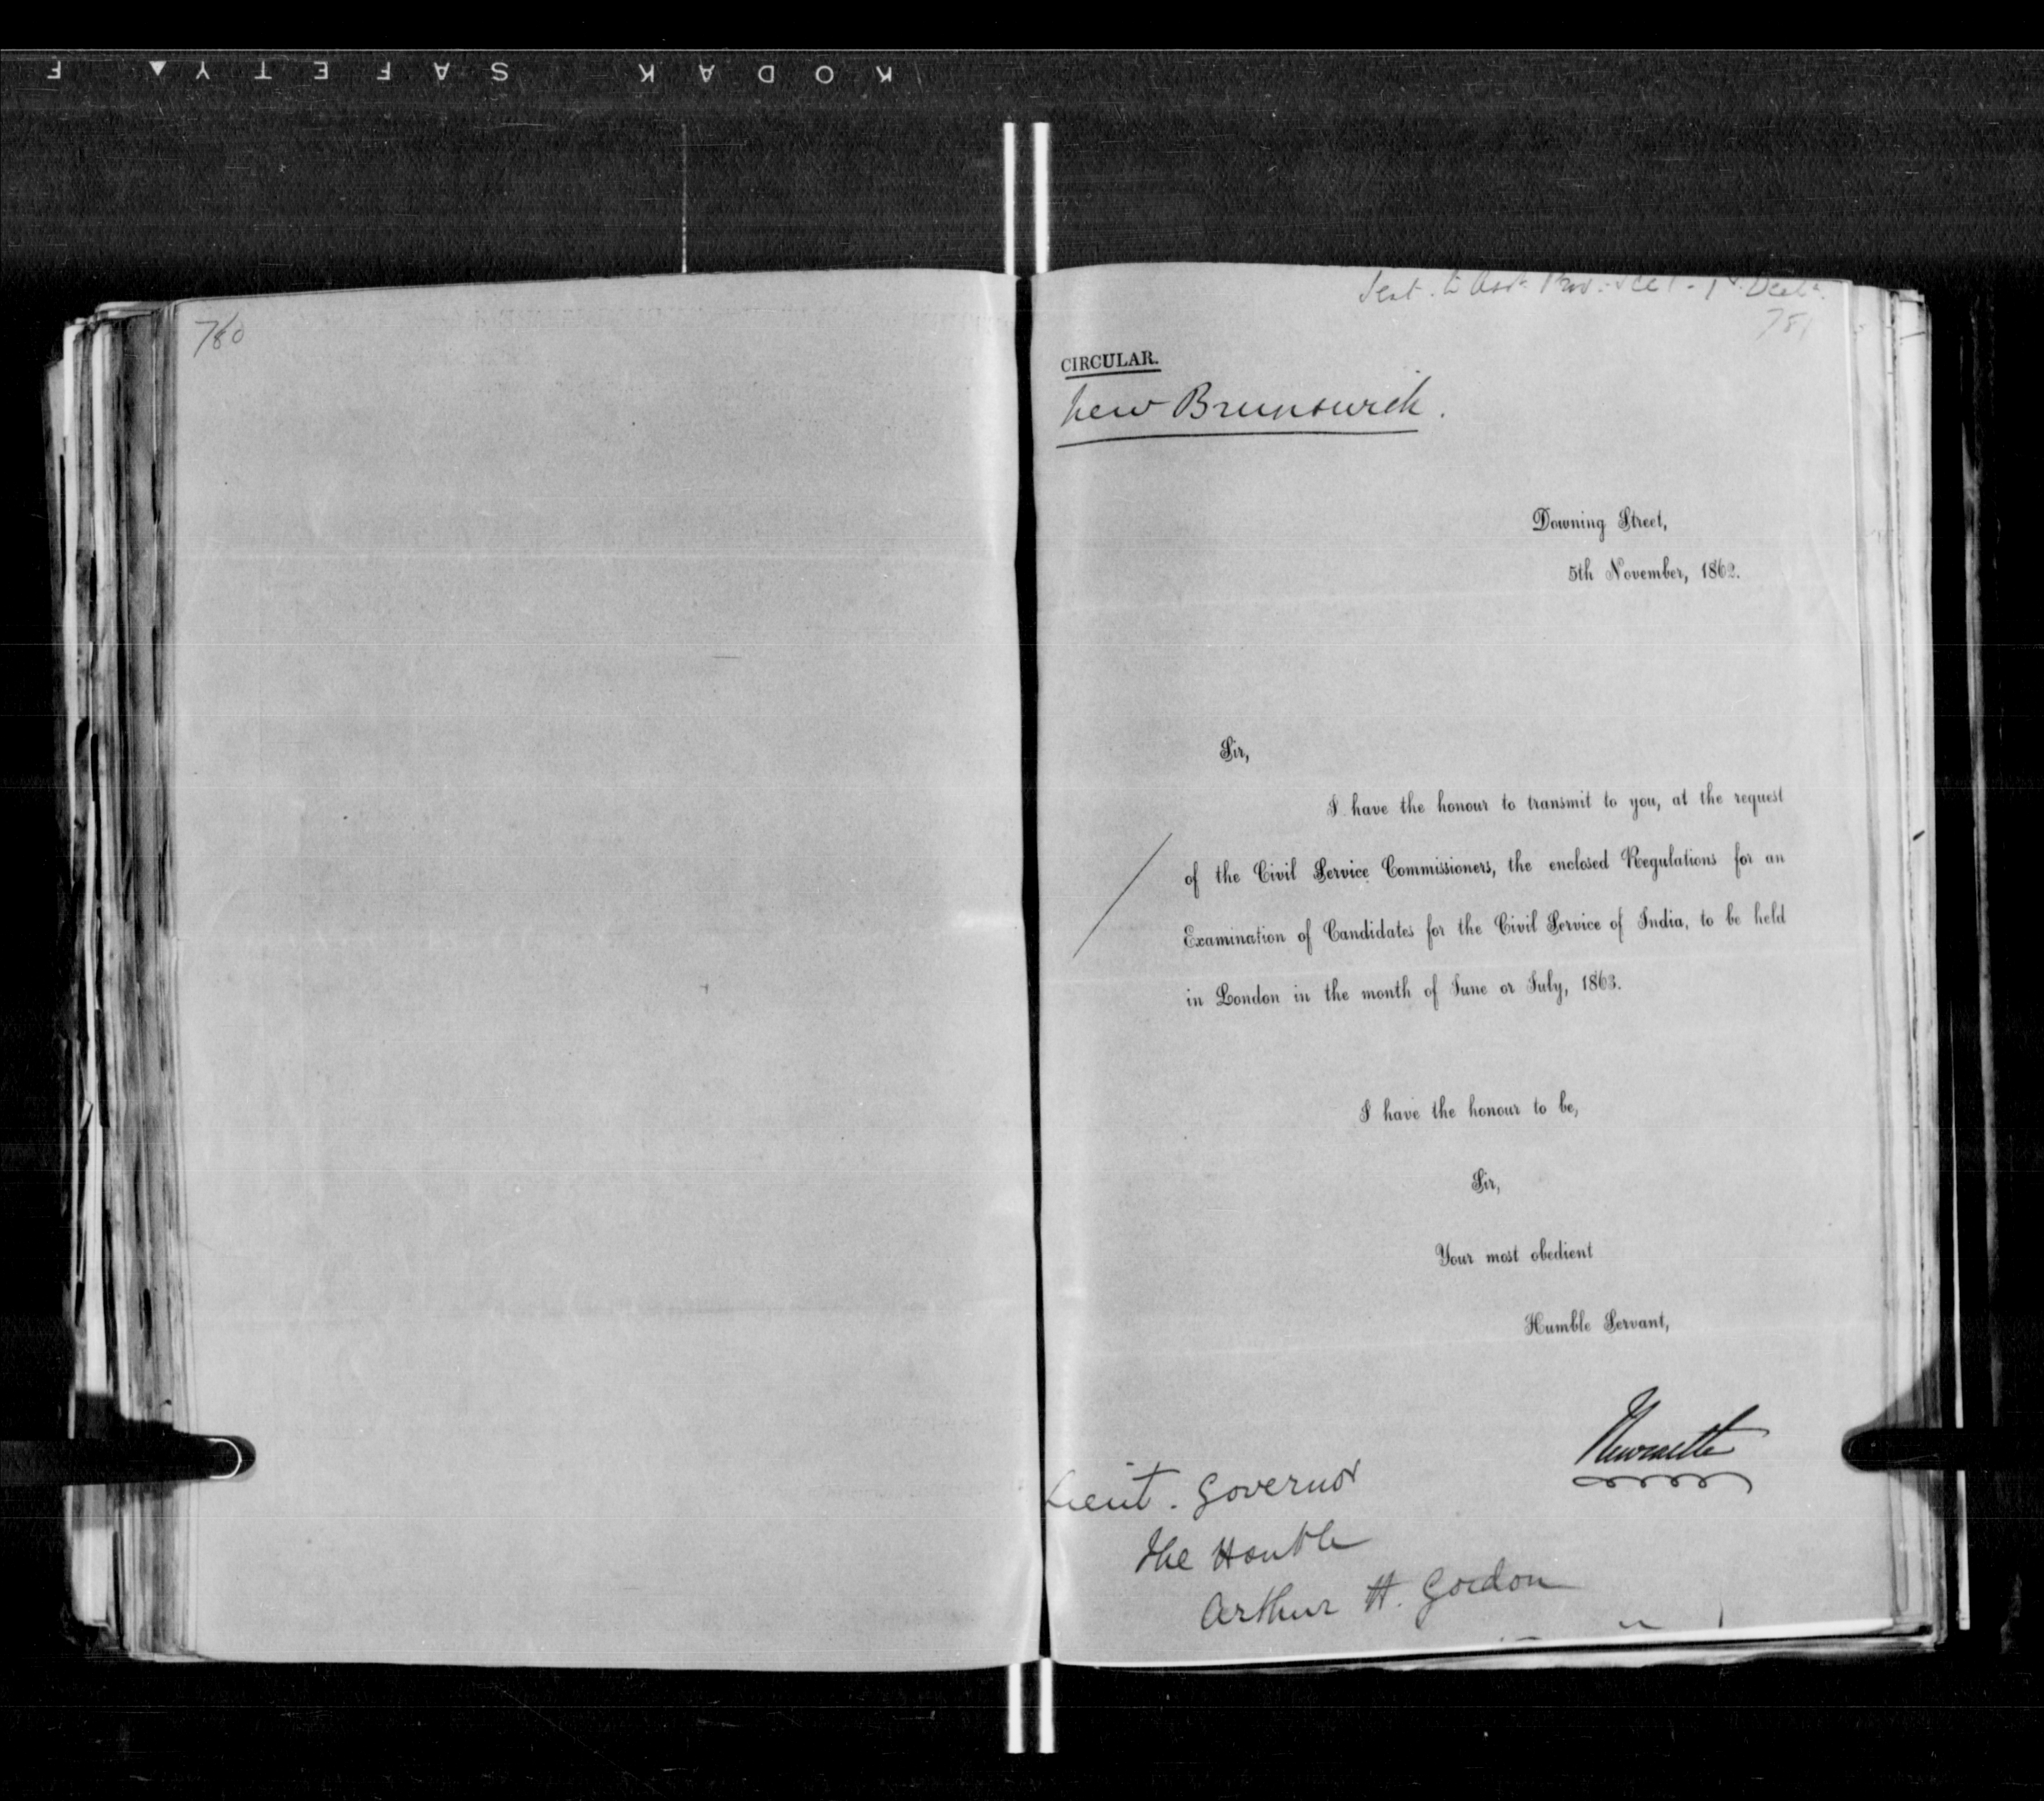 KODAK SAFETY F
780
Sent. to
781
CIRCULAR.
New Brunswick.
Downing Street,
5th November, 1862.
Sir,
I have the honour to transmit to you, at the request
of the Civil Service Commissioners, the enclosed Regulations for an
Examination of Candidates for the Civil Service of India, to be held
in London in the month of June or July, 1863.
I have the honour to be,
Sir,
Your most obedient
Humble Servant,
Newcastle
Lieut. Governor
The Honble
Arthur H. Gordon